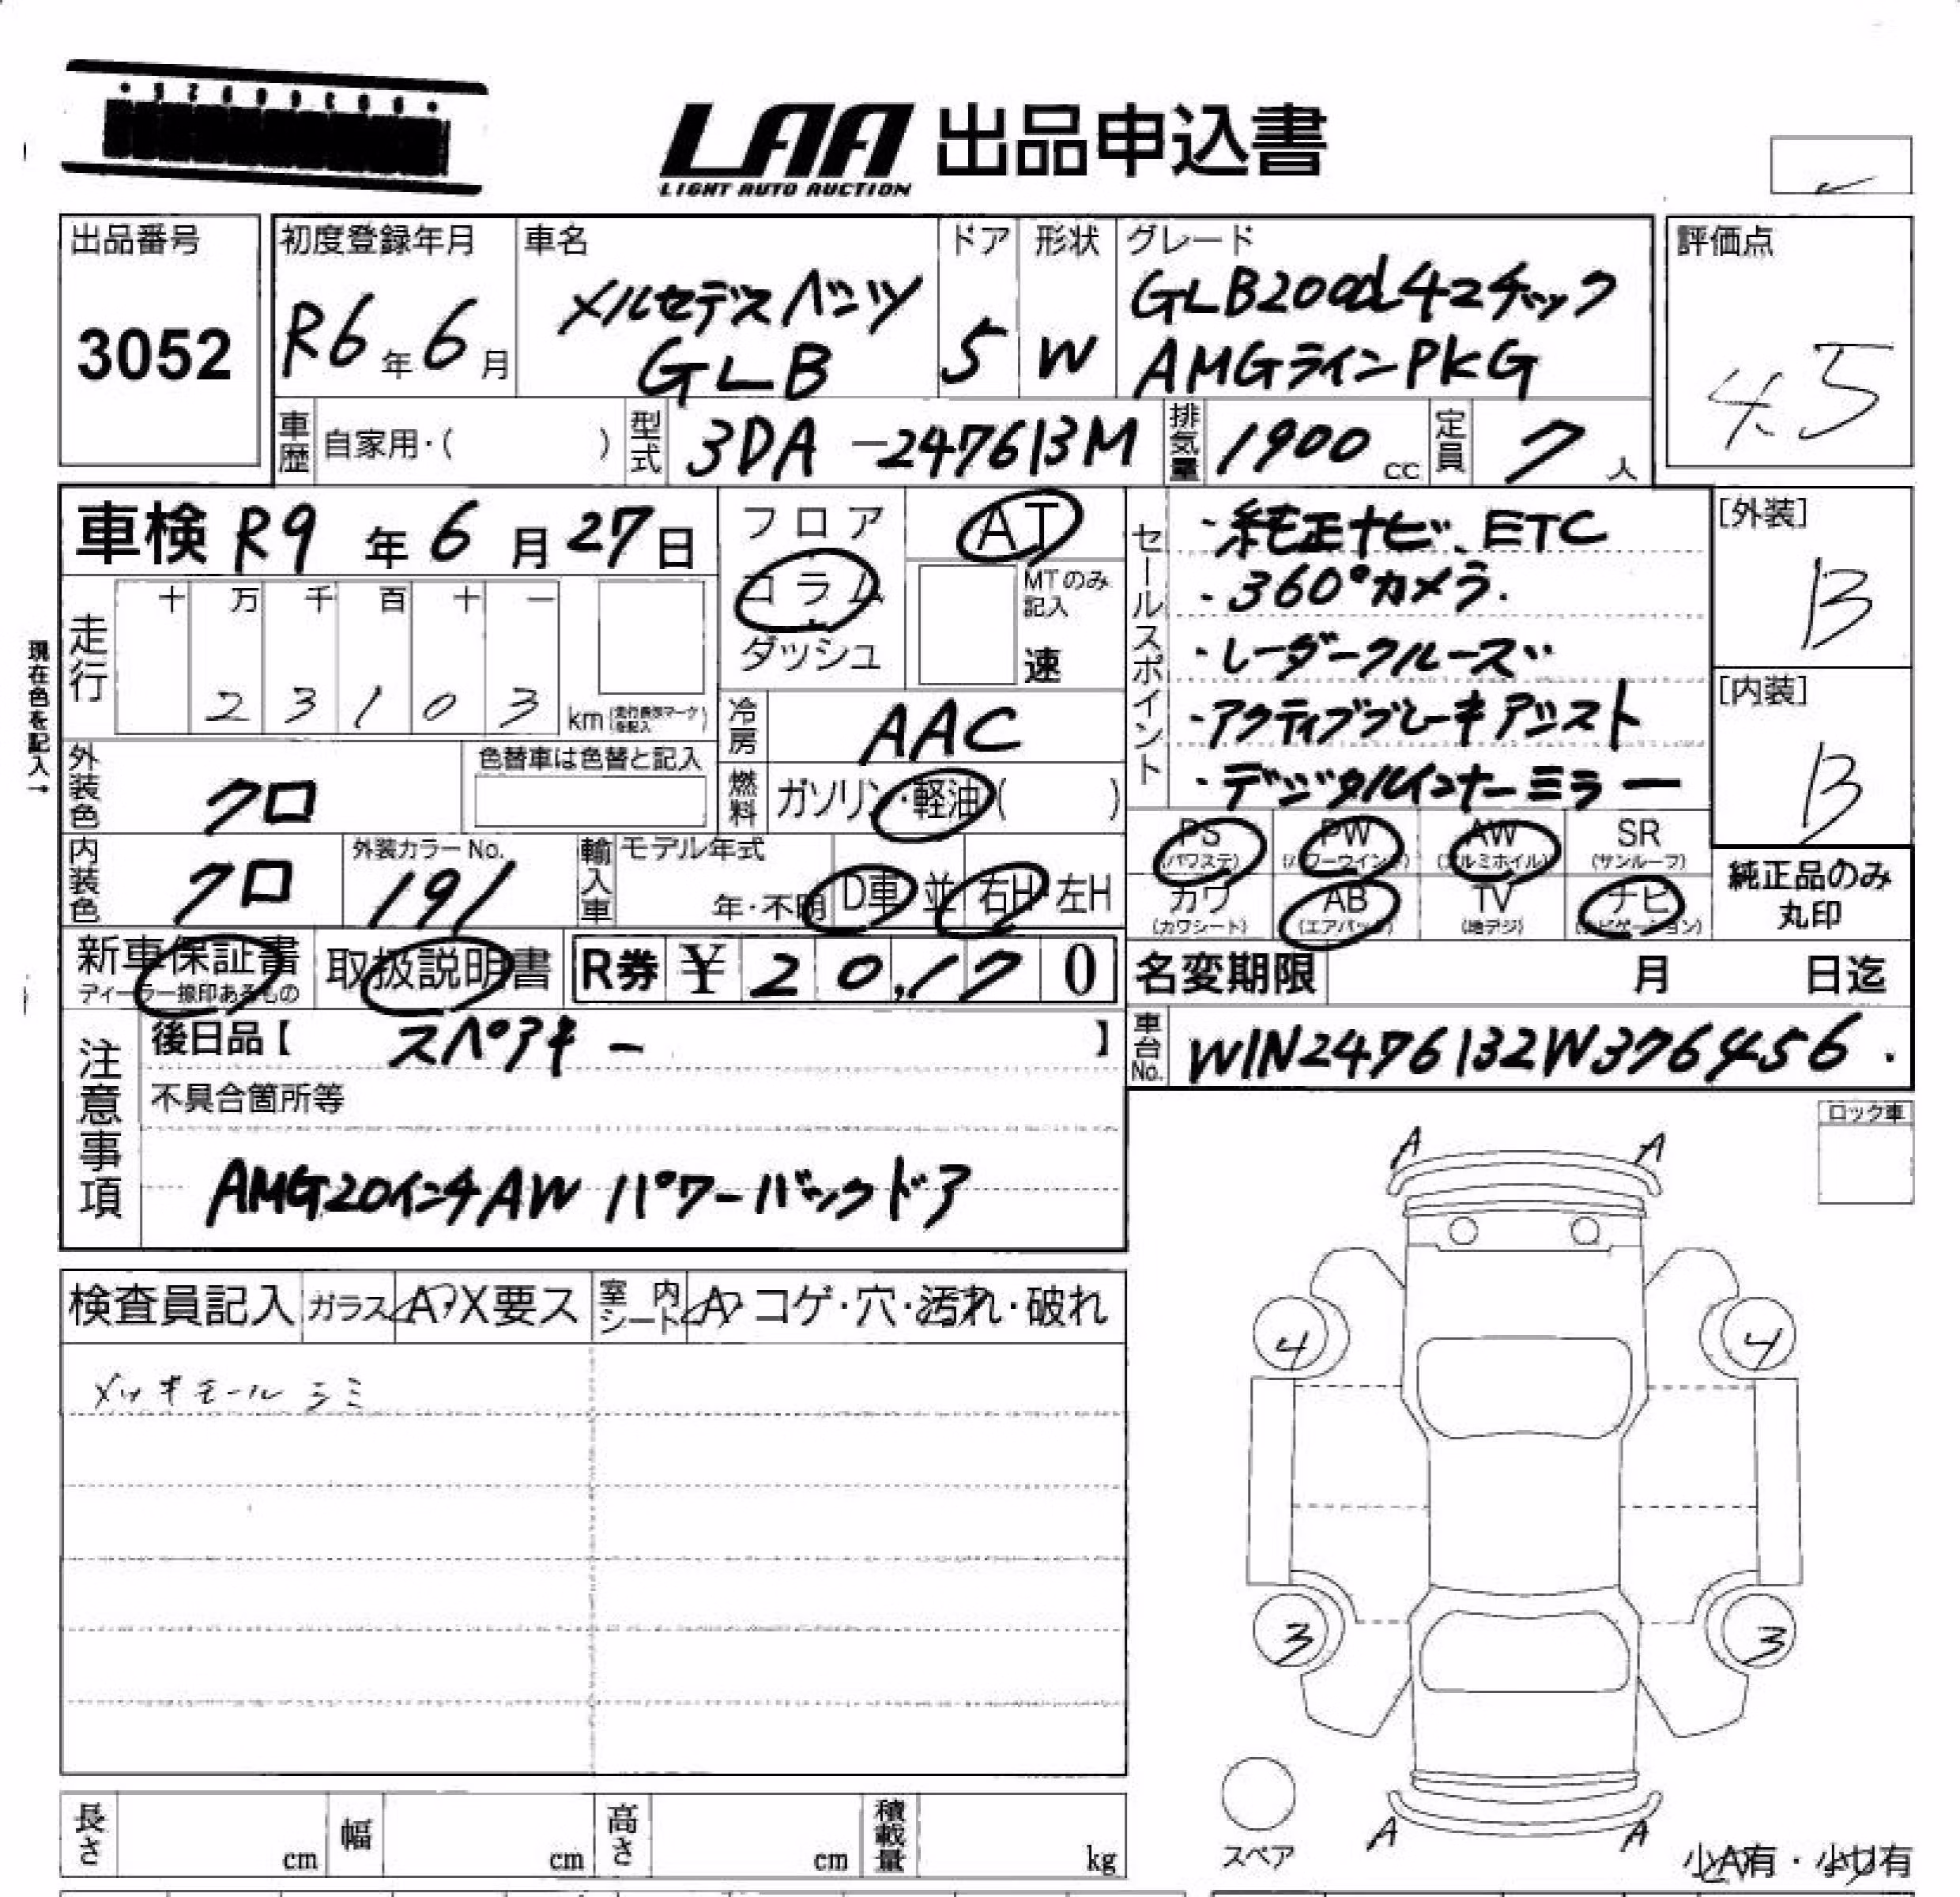 LAA 出品申込書
LIGHT AUTO AUCTION
出品番号
3052
初度登録年月
R6年6月
車名
メルセデスベンツ
GLB
ドア
5
形状
W
グレード
GLB200d4マチック
AMGラインPKG
評価点
4.5
車歴 自家用・( )
型式 3DA-247613M
排気量 1900cc
定員 7人
車検 R9年6月27日
走行
十 万 千 百 十 一
2 3 1 0 3 km
現在色を記入→
外装色 クロ
色替車は色替と記入
内装色 クロ
外装カラーNo.
191
フロア
コラム
ダッシュ
AT
MTのみ記入
速
冷房 AAC
燃料 ガソリン・軽油( )
輸入車 モデル年式
年・不明 D車 並 右H 左H
セールスポイント
・純正ナビ、ETC
・360°カメラ.
・レーダークルーズ
・アクティブブレーキアシスト
・デジタルインナーミラー
[外装]
B
[内装]
B
PS (パワステ)
PW (パワーウインド)
AW (アルミホイル)
SR (サンルーフ)
カワ (カワシート)
AB (エアバック)
TV (地デジ)
ナビ (ナビゲーション)
純正品のみ
丸印
新車保証書
ディーラー捺印あるもの
取扱説明書
R券 ¥20,170
名変期限 月 日迄
車台No. W1N2476132W376456.
注意事項
後日品【 スペアキー 】
不具合箇所等
AMG20インチAW パワーバックドア
検査員記入 ガラス A・X要ス 室内シート A コゲ・穴・汚れ・破れ
メッキモールシミ
ロック車
A A
4 4
3 3
A A
スペア
少A有・少U有
長さ cm 幅 cm 高さ cm 積載量 kg